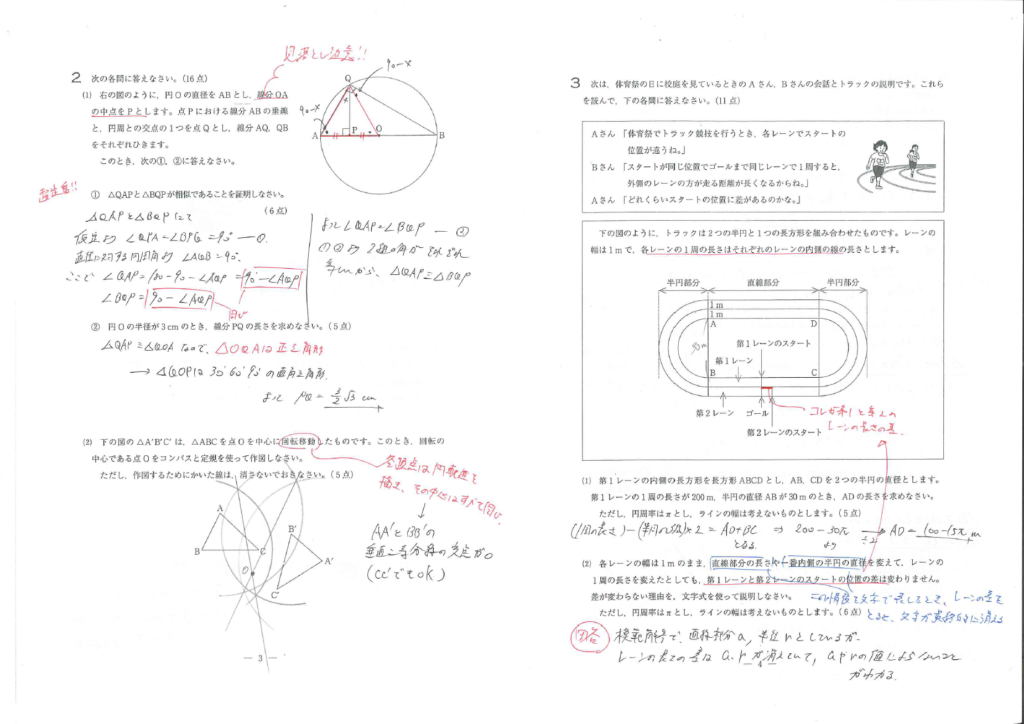 見落とし注意!!
2 次の各問に答えなさい。(16点)
(1) 右の図のように，円Oの直径をABとし，線分OA
の中点をPとします。点Pにおける線分ABの垂線
と，円周との交点の1つを点Qとし，線分AQ，QB
をそれぞれひきます。
このとき，次の①，②に答えなさい。
Q
90-x
x
90-x
A
P
O
B
① △QAPと△BQPが相似であることを証明しなさい。
(6点)
△QAPと△BQPにて
仮定より ∠QPA=∠BPQ=90° ―①
直径に対する円周角より ∠AQB=90°
ここで ∠QAP=180-90-∠AQP=90°-∠AQP
∠BQP=90-∠AQP
同じ
よって ∠QAP=∠BQP ―②
①②より 2組の角がそれぞれ
等しいから、△QAP∽△BQP
② 円Oの半径が3cmのとき，線分PQの長さを求めなさい。(5点)
△OQAは正三角形
→ △QOPは30°60°90°の直角三角形
よって PQ=3/2√3 cm
(2) 下の図の△A'B'C'は，△ABCを点Oを中心に回転移動したものです。このとき，回転の
中心である点Oをコンパスと定規を使って作図しなさい。
ただし，作図するためにかいた線は，消さないでおきなさい。(5点)
各頂点は円軌道を
描き、その中心はすべて同じ
AA'とBB'の
垂直二等分線の交点がO
(CC'でもOK)
A
B
C
O
B'
A'
C'
― 3 ―
3 次は，体育祭の日に校庭を見ているときのAさん，Bさんの会話とトラックの説明です。これら
を読んで，下の各問に答えなさい。(11点)
Aさん「体育祭でトラック競技を行うとき，各レーンでスタートの
位置が違うね。」
Bさん「スタートが同じ位置でゴールまで同じレーンで1周すると，
外側のレーンの方が走る距離が長くなるからね。」
Aさん「どれくらいスタートの位置に差があるのかな。」
下の図のように，トラックは2つの半円と1つの長方形を組み合わせたものです。レーンの
幅は1mで，各レーンの1周の長さはそれぞれのレーンの内側の線の長さとします。
半円部分
直線部分
半円部分
1m
1m
A
D
30m
第1レーンのスタート
第1レーン
B
C
第2レーン
ゴール
第2レーンのスタート
コレが第1と第2の
レーンの長さの差.
(1) 第1レーンの内側の長方形を長方形ABCDとし，AB，CDを2つの半円の直径とします。
第1レーンの1周の長さが200m，半円の直径ABが30mのとき，ADの長さを求めなさい。
ただし，円周率はπとし，ラインの幅は考えないものとします。(5点)
(1周の長さ)-(半円の弧)×2=AD+BC ⇒ 200-30π →÷2 AD=100-15π m
となる.
(2) 各レーンの幅は1mのまま，直線部分の長さや一番内側の半円の直径を変えて，レーンの
1周の長さを変えたとしても，第1レーンと第2レーンのスタートの位置の差は変わりません。
差が変わらない理由を，文字式を使って説明しなさい。
ただし，円周率はπとし，ラインの幅は考えないものとします。(6点)
この情報を文字で表しておき、レーンの差を
とると、文字が最終的に消える
回答
模範解答で、直線部分a, 半径rとしているが
レーンの長さの差はa,rが消えていて, aやrの値によらないこと
がわかる.